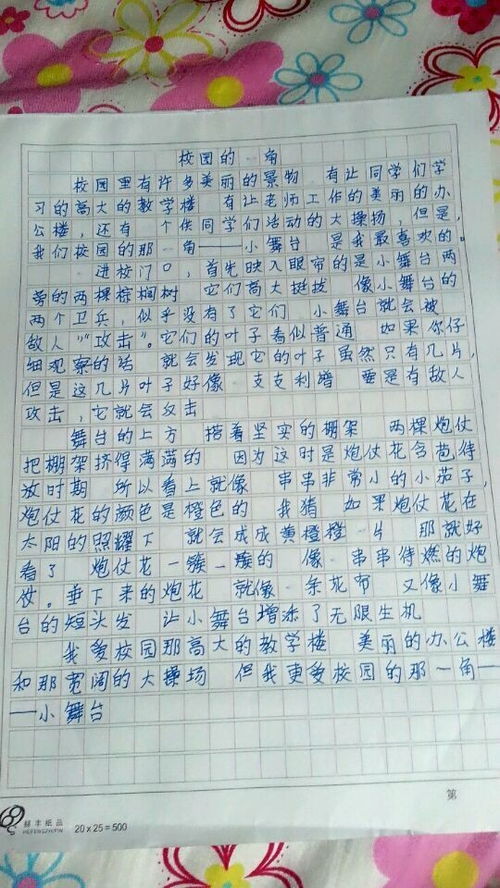 校园的一角
校园里有许多美丽的景物 有让同学们学
习的高大的教学楼 有让老师工作的美丽的办
公楼，还有 个供同学们活动的大操场，但是，
我们校园的那一角——小舞台 是我最喜欢的。
进校门口，首先映入眼帘的是小舞台两
旁的两棵棕榈树 它们高大挺拔 像小舞台的
两个卫兵，似乎没有了它们 小舞台就会被
敌人“攻击”。它们的叶子看似普通 如果你仔
细观察的话 就会发现它的叶子虽然只有几片，
但是这几片叶子好像 支支利 要是有敌人
攻击，它就会反击
舞台的上方 搭着坚实的棚架 两棵炮仗
把棚架挤得满满的 因为这时是炮仗花含苞待
放时期 所以看上就像 串串非常小的小茄子，
炮仗花的颜色是橙色的 我猜 如果炮仗花在
太阳的照耀下 就会成成黄橙橙一片 那就好
看了 炮仗花一簇一簇的 像一串串待燃的炮
仗。垂下来的炮花 就像一条花布 又像小舞
台的短头发 让小舞台增添了无限生机
我爱校园那高大的教学楼 美丽的办公楼
和那宽阔的大操场 但我更爱校园的那一角—
—小舞台
第
赫丰纸品
HEFENGZHIPIN
20×25=500